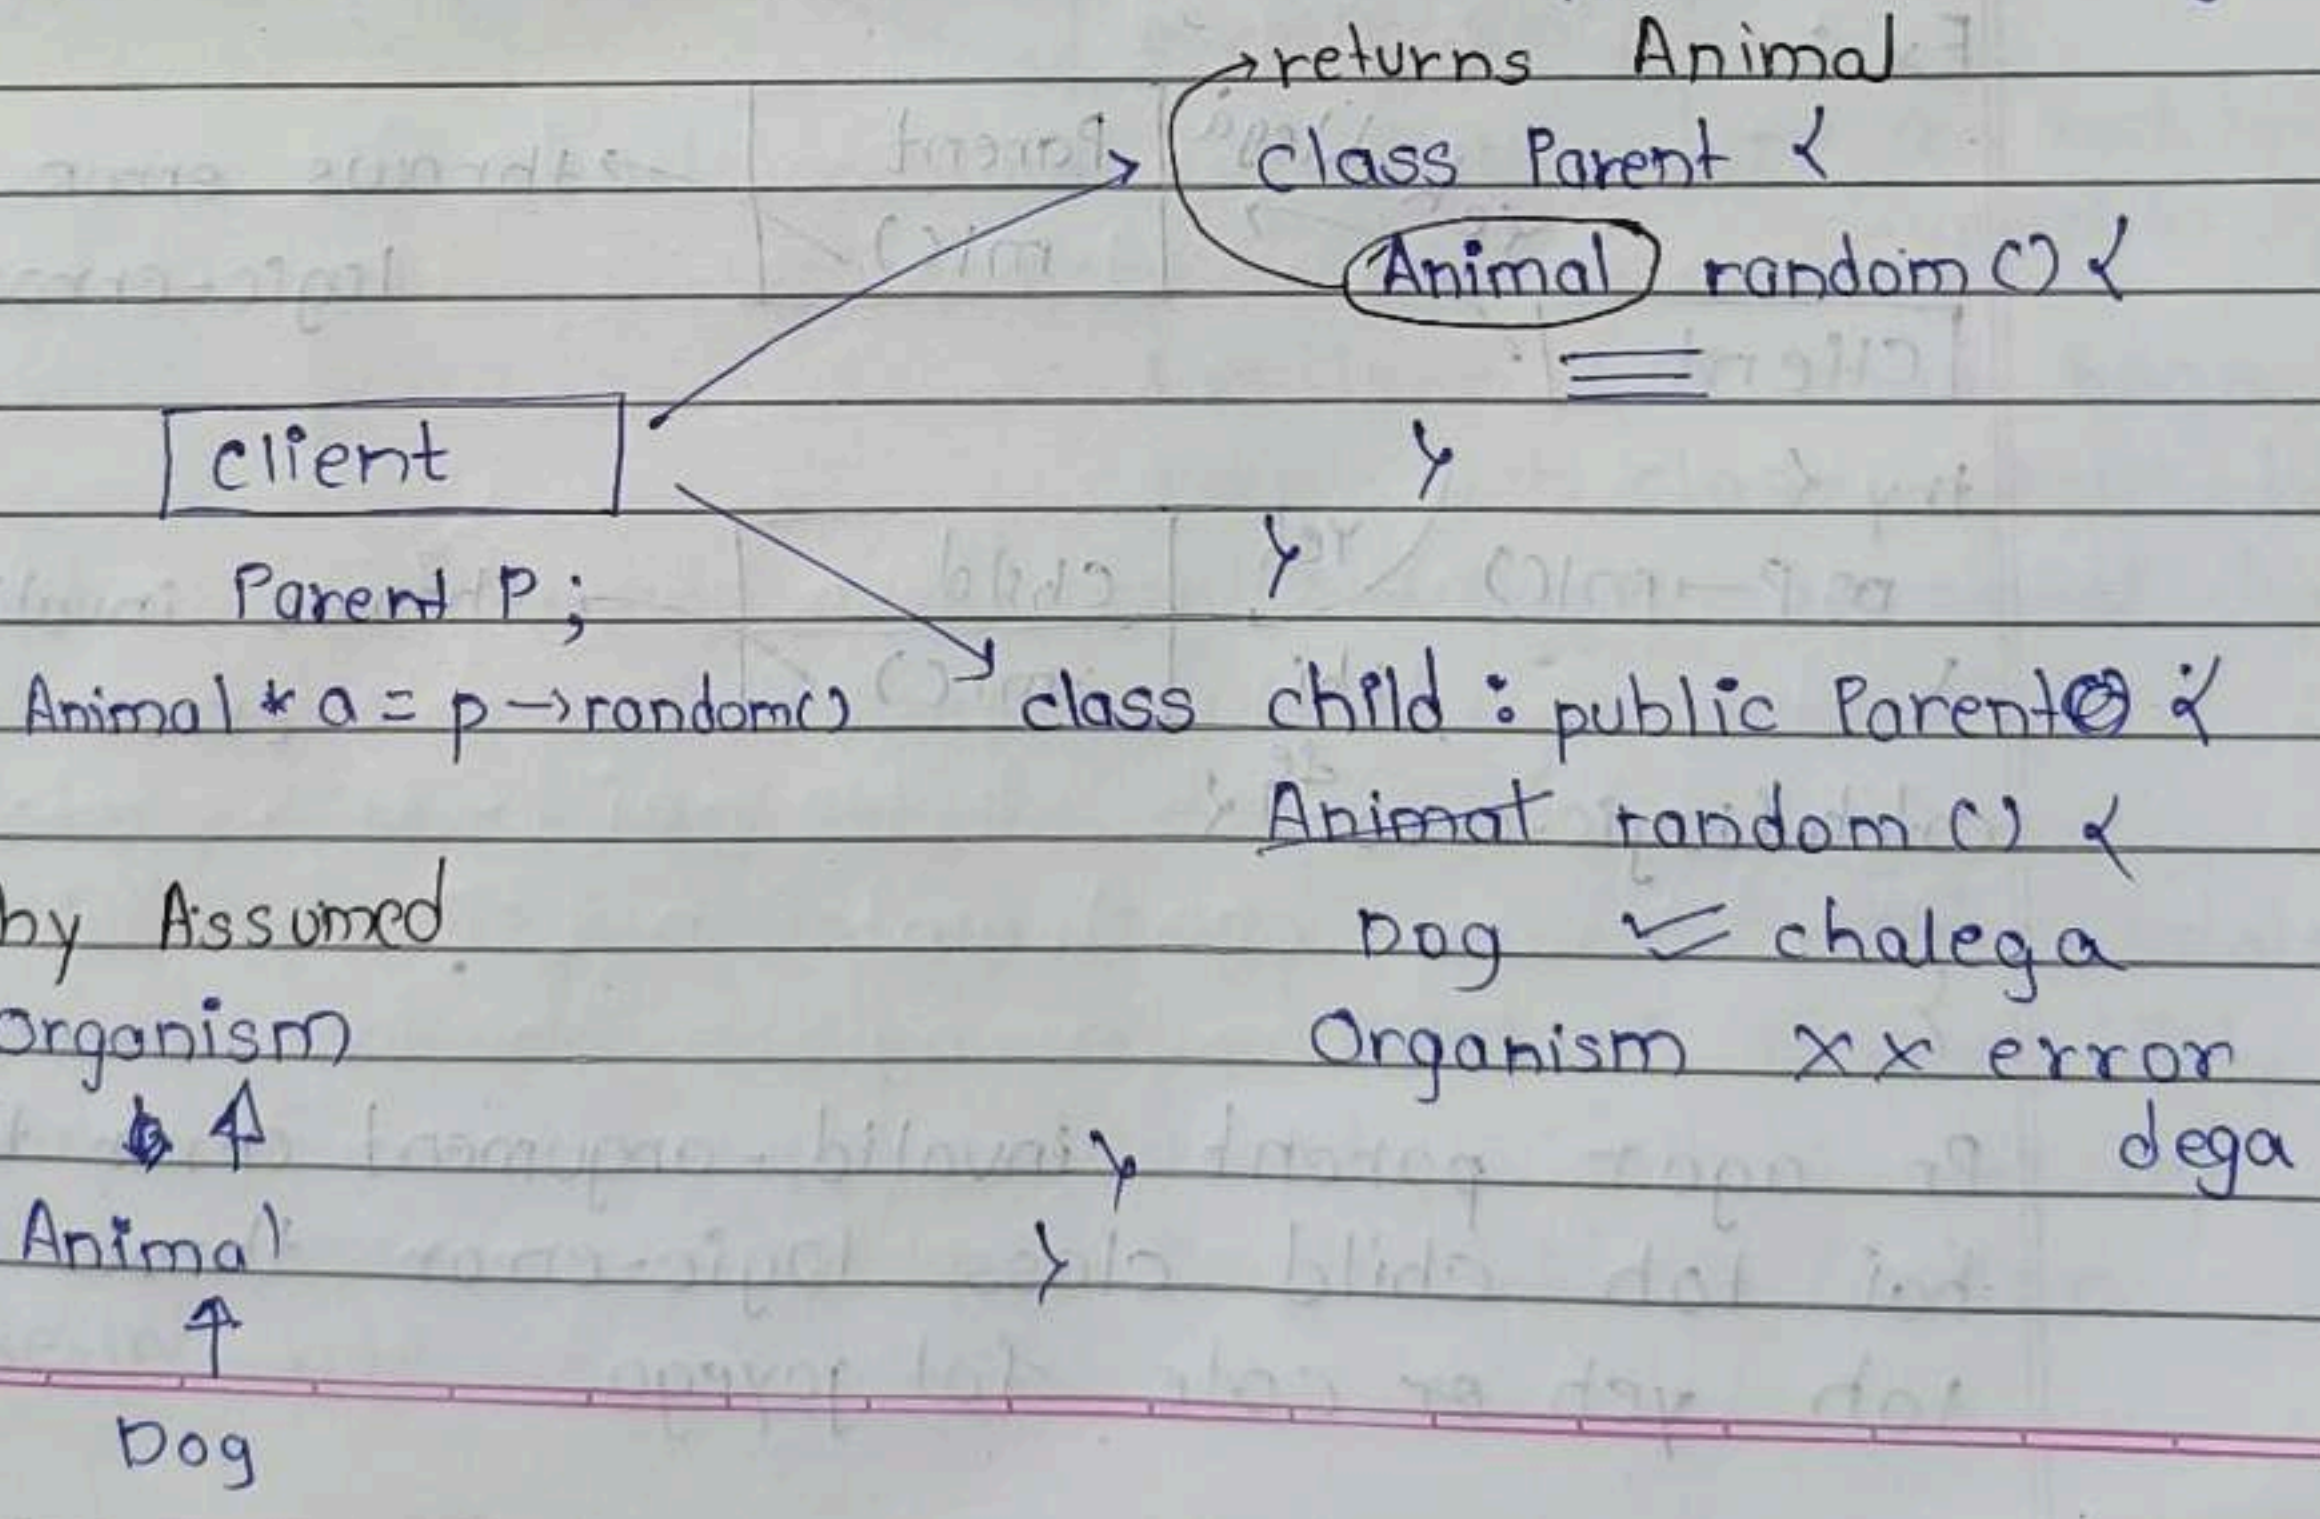 returns Animal
class Parent {
Animal random () {
}
}
client
Parent P ;
Animal * a = p → random()
class child : public Parent {
Animal random () {
Dog chalega
Organism x x error
dega
}
}
by Assumed
Organism
Animal
Dog